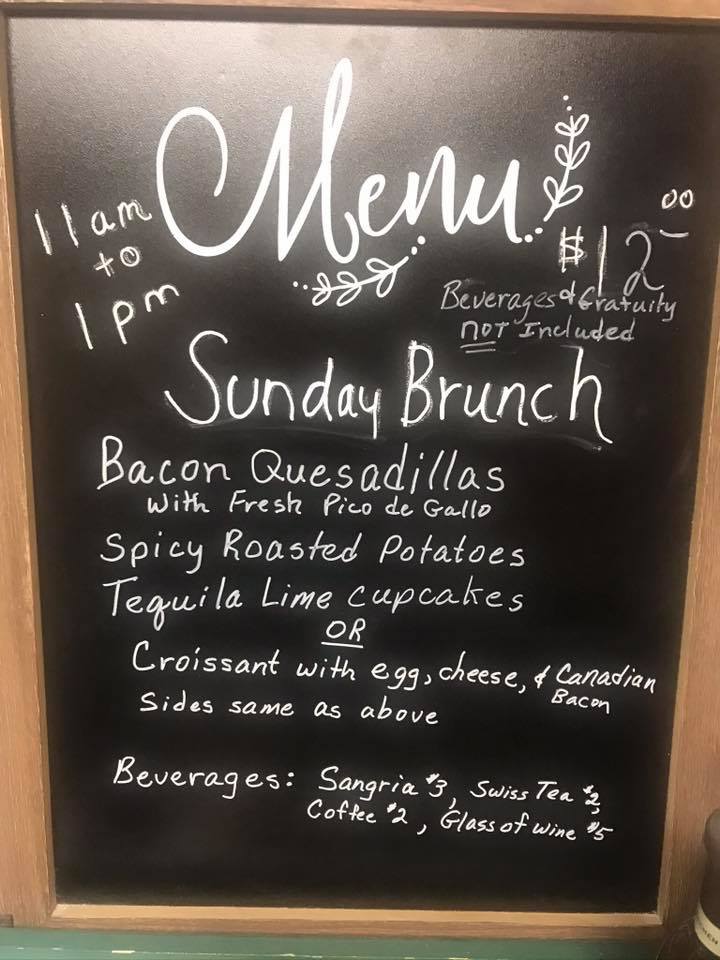 Menu
11am
to
1pm
$12.00
Beverages & Gratuity
NOT Included
Sunday Brunch
Bacon Quesadillas
With Fresh Pico de Gallo
Spicy Roasted Potatoes
Tequila Lime Cupcakes
OR
Croissant with egg, cheese, & Canadian
Bacon
Sides same as above
Beverages: Sangria $3, Swiss Tea $2,
Coffee $2, Glass of wine $5